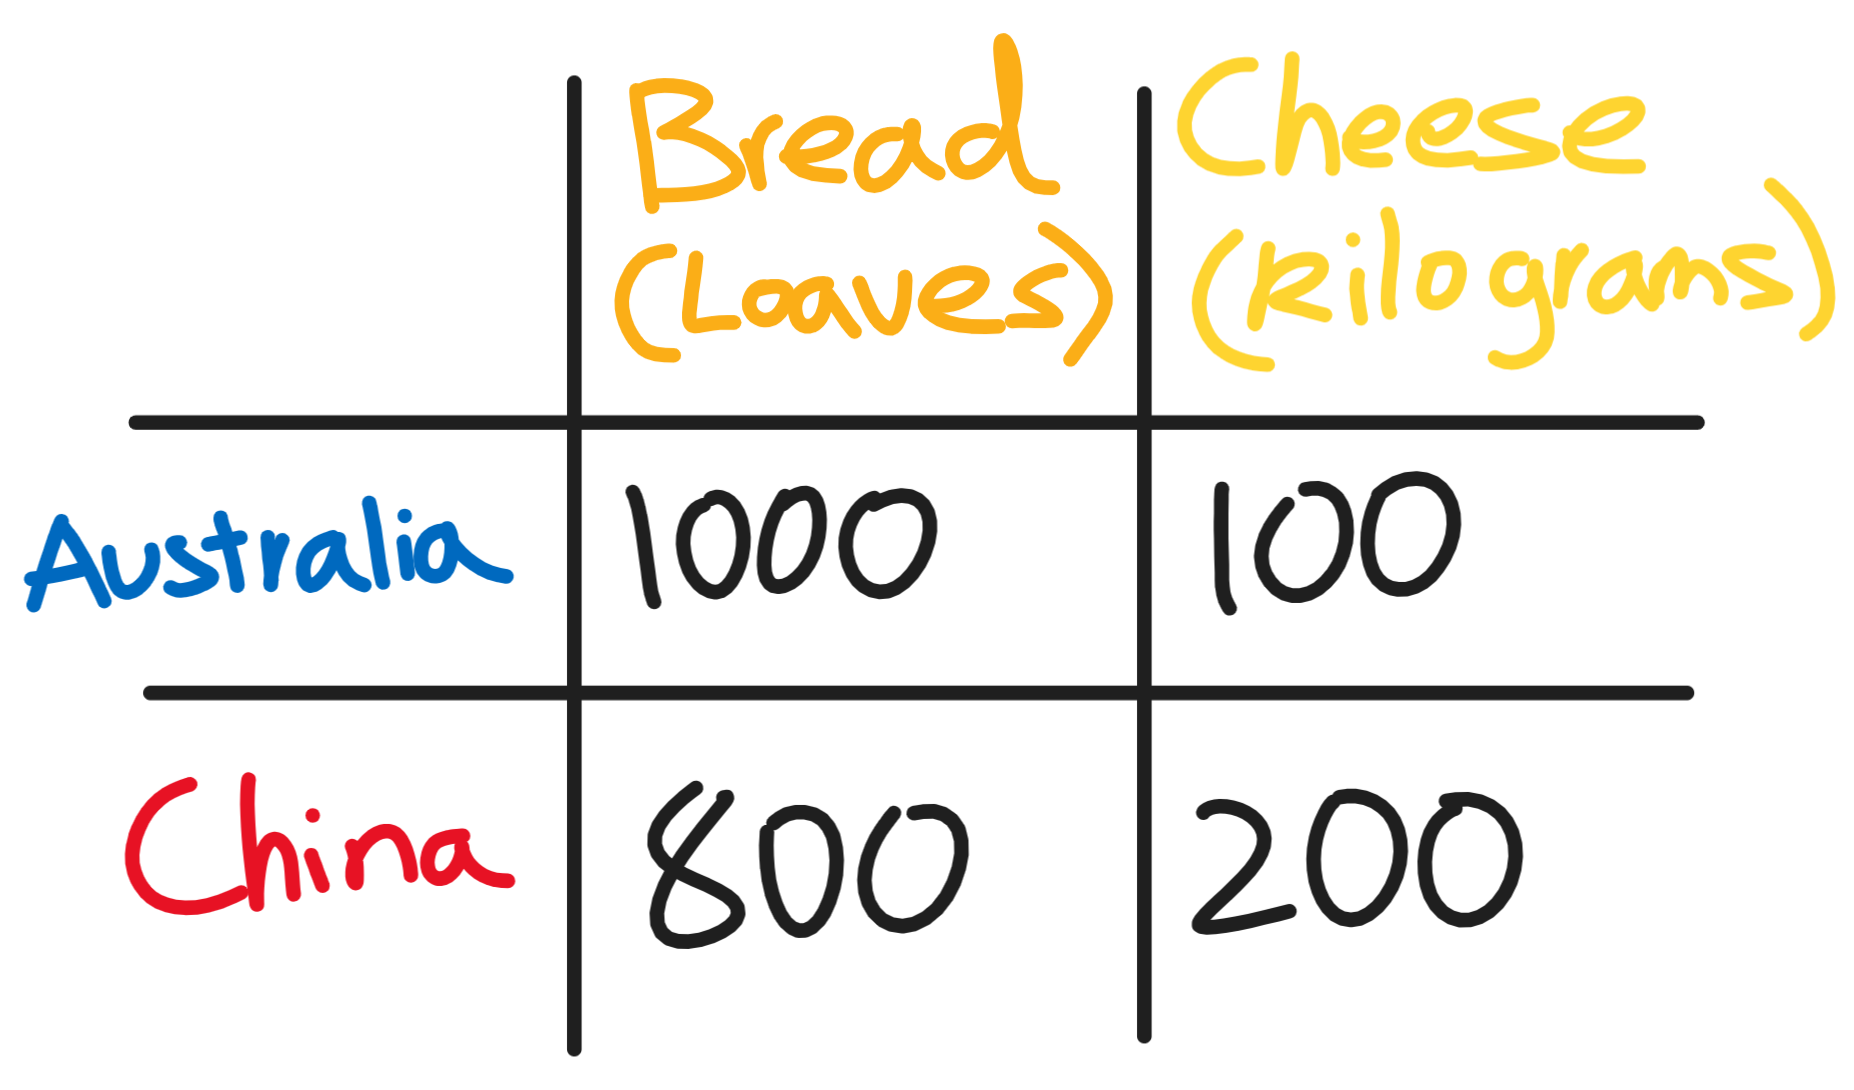 Bread Cheese
(Loaves) (Kilograms)
Australia 1000 100
China 800 200